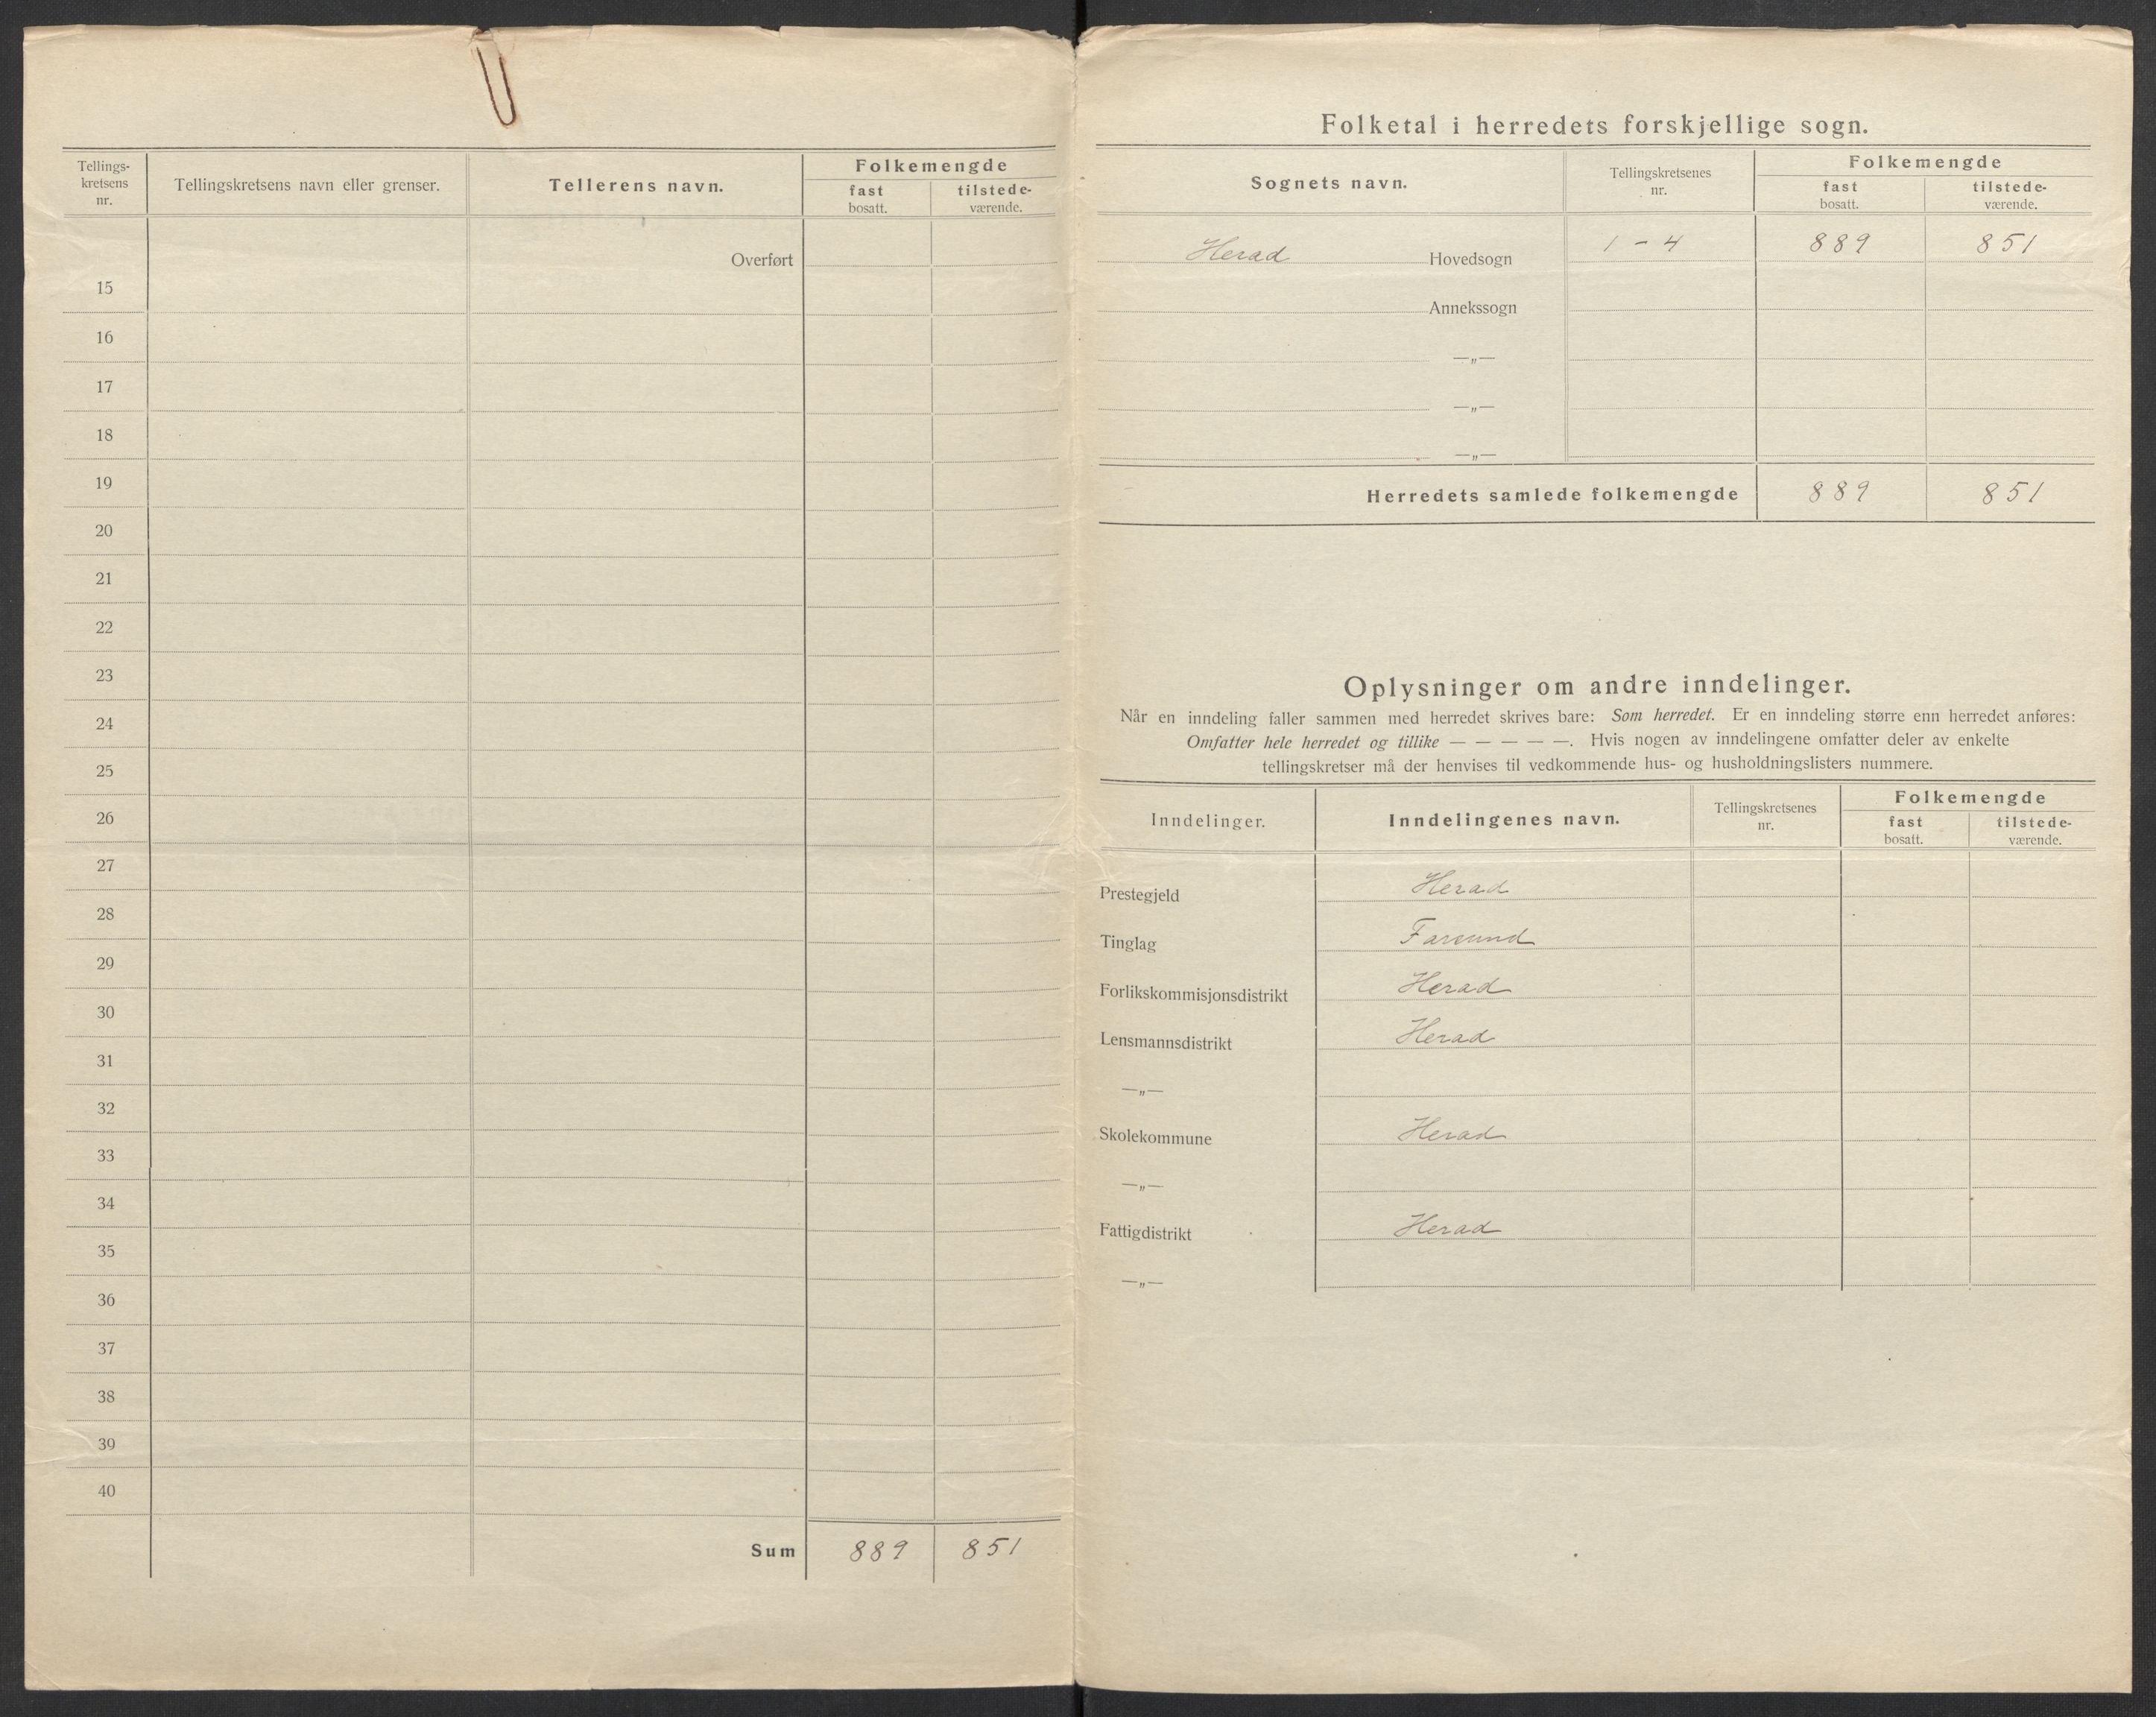 Tellings-
kretsens
nr.
Tellingskretsens navn eller grenser.
Tellerens navn.
Folkemengde
fast
bosatt.
tilstede-
værende.
Overført
15
16
17
18
19
20
21
22
23
24
25
26
27
28
29
30
31
32
33
34
35
36
37
38
39
40
Sum 889 851
Folketal i herredets forskjellige sogn.
Sognets navn.
Tellingskretsenes
nr.
Folkemengde
fast
bosatt.
tilstede-
værende.
Herad Hovedsogn 1 - 4 889 851
Annekssogn
—„—
—„—
—„—
Herredets samlede folkemengde 889 851
Oplysninger om andre inndelinger.
Når en inndeling faller sammen med herredet skrives bare: Som herredet. Er en inndeling større enn herredet anføres:
Omfatter hele herredet og tillike — — — — —. Hvis nogen av inndelingene omfatter deler av enkelte
tellingskretser må der henvises til vedkommende hus- og husholdningslisters nummere.
Inndelinger.
Inndelingenes navn.
Tellingskretsenes
nr.
Folkemengde
fast
bosatt.
tilstede-
værende.
Prestegjeld Herad
Tinglag Farsund
Forlikskommisjonsdistrikt Herad
Lensmannsdistrikt Herad
—„—
Skolekommune Herad
—„—
Fattigdistrikt Herad
—„—